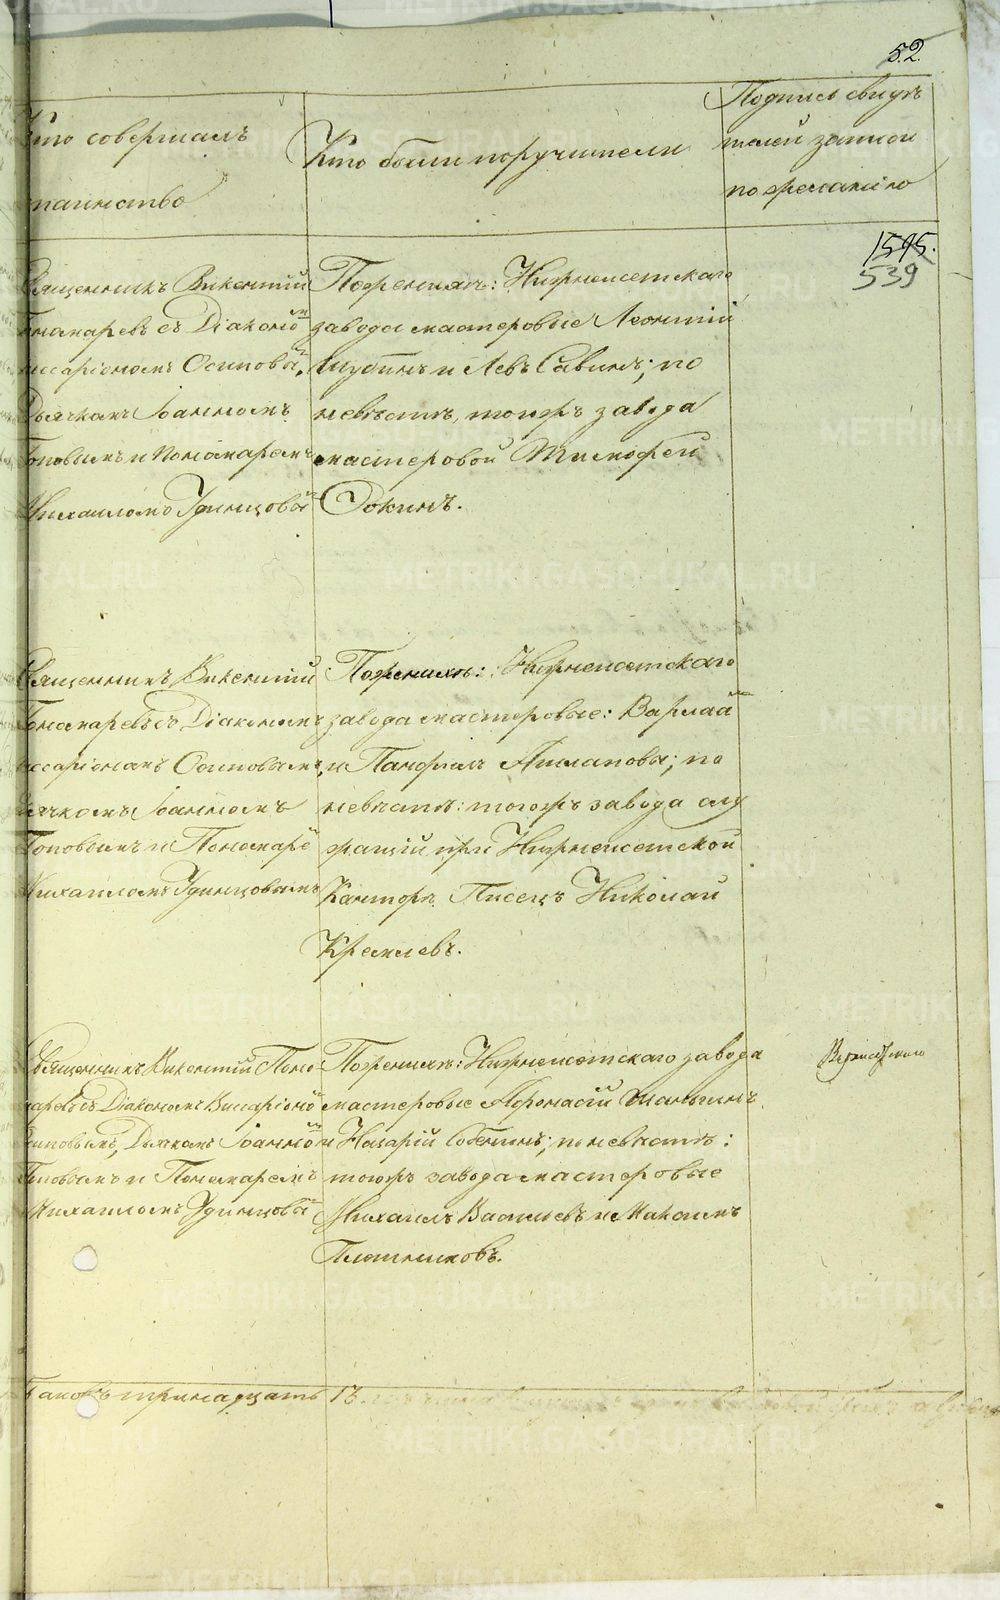 52.
Кто совершалъ
таинство
Кто были поручители
Подпись свидѣ
телей записи
по желанію
1595.
539
Священникъ Викентій
Пономаревъ съ Діакономъ
Виссаріономъ Осиповымъ,
Дьячкомъ Іоанномъ
Поповымъ и Пономаремъ
Михаиломъ Удинцовымъ
По женихѣ: Нижнеисетскаго
завода мастеровые Леонтій
Шубинъ и Левъ Савинъ; по
невѣстѣ, тогожъ завода
мастеровой Тимофей
Фокинъ.
Священникъ Викентій
Пономаревъ съ Діакономъ
Виссаріономъ Осиповымъ,
Дьячкомъ Іоанномъ
Поповымъ и Пономаремъ
Михаиломъ Удинцовымъ
По женихѣ: Нижнеисетскаго
завода мастеровые: Варлаамъ
и Панфилъ; по
невѣстѣ: тогожъ завода слу
жащій при Нижнеисетской
Конторѣ Писецъ Николай
Кремлевъ.
Священникъ Викентій Поно
маревъ съ Діакономъ Виссаріономъ
Осиповымъ, Дьячкомъ Іоанномъ
Поповымъ и Пономаремъ
Михаиломъ Удинцовымъ
По женихѣ: Нижнеисетскаго завода
мастеровые Афонасій Шаньгинъ
и Назарій Собенинъ; по невѣстѣ:
тогожъ завода мастеровые
Михаилъ Васильевъ и Максимъ
Плотниковъ.
браковъ тринадцать 13.
METRIKI.GASO-URAL.RU